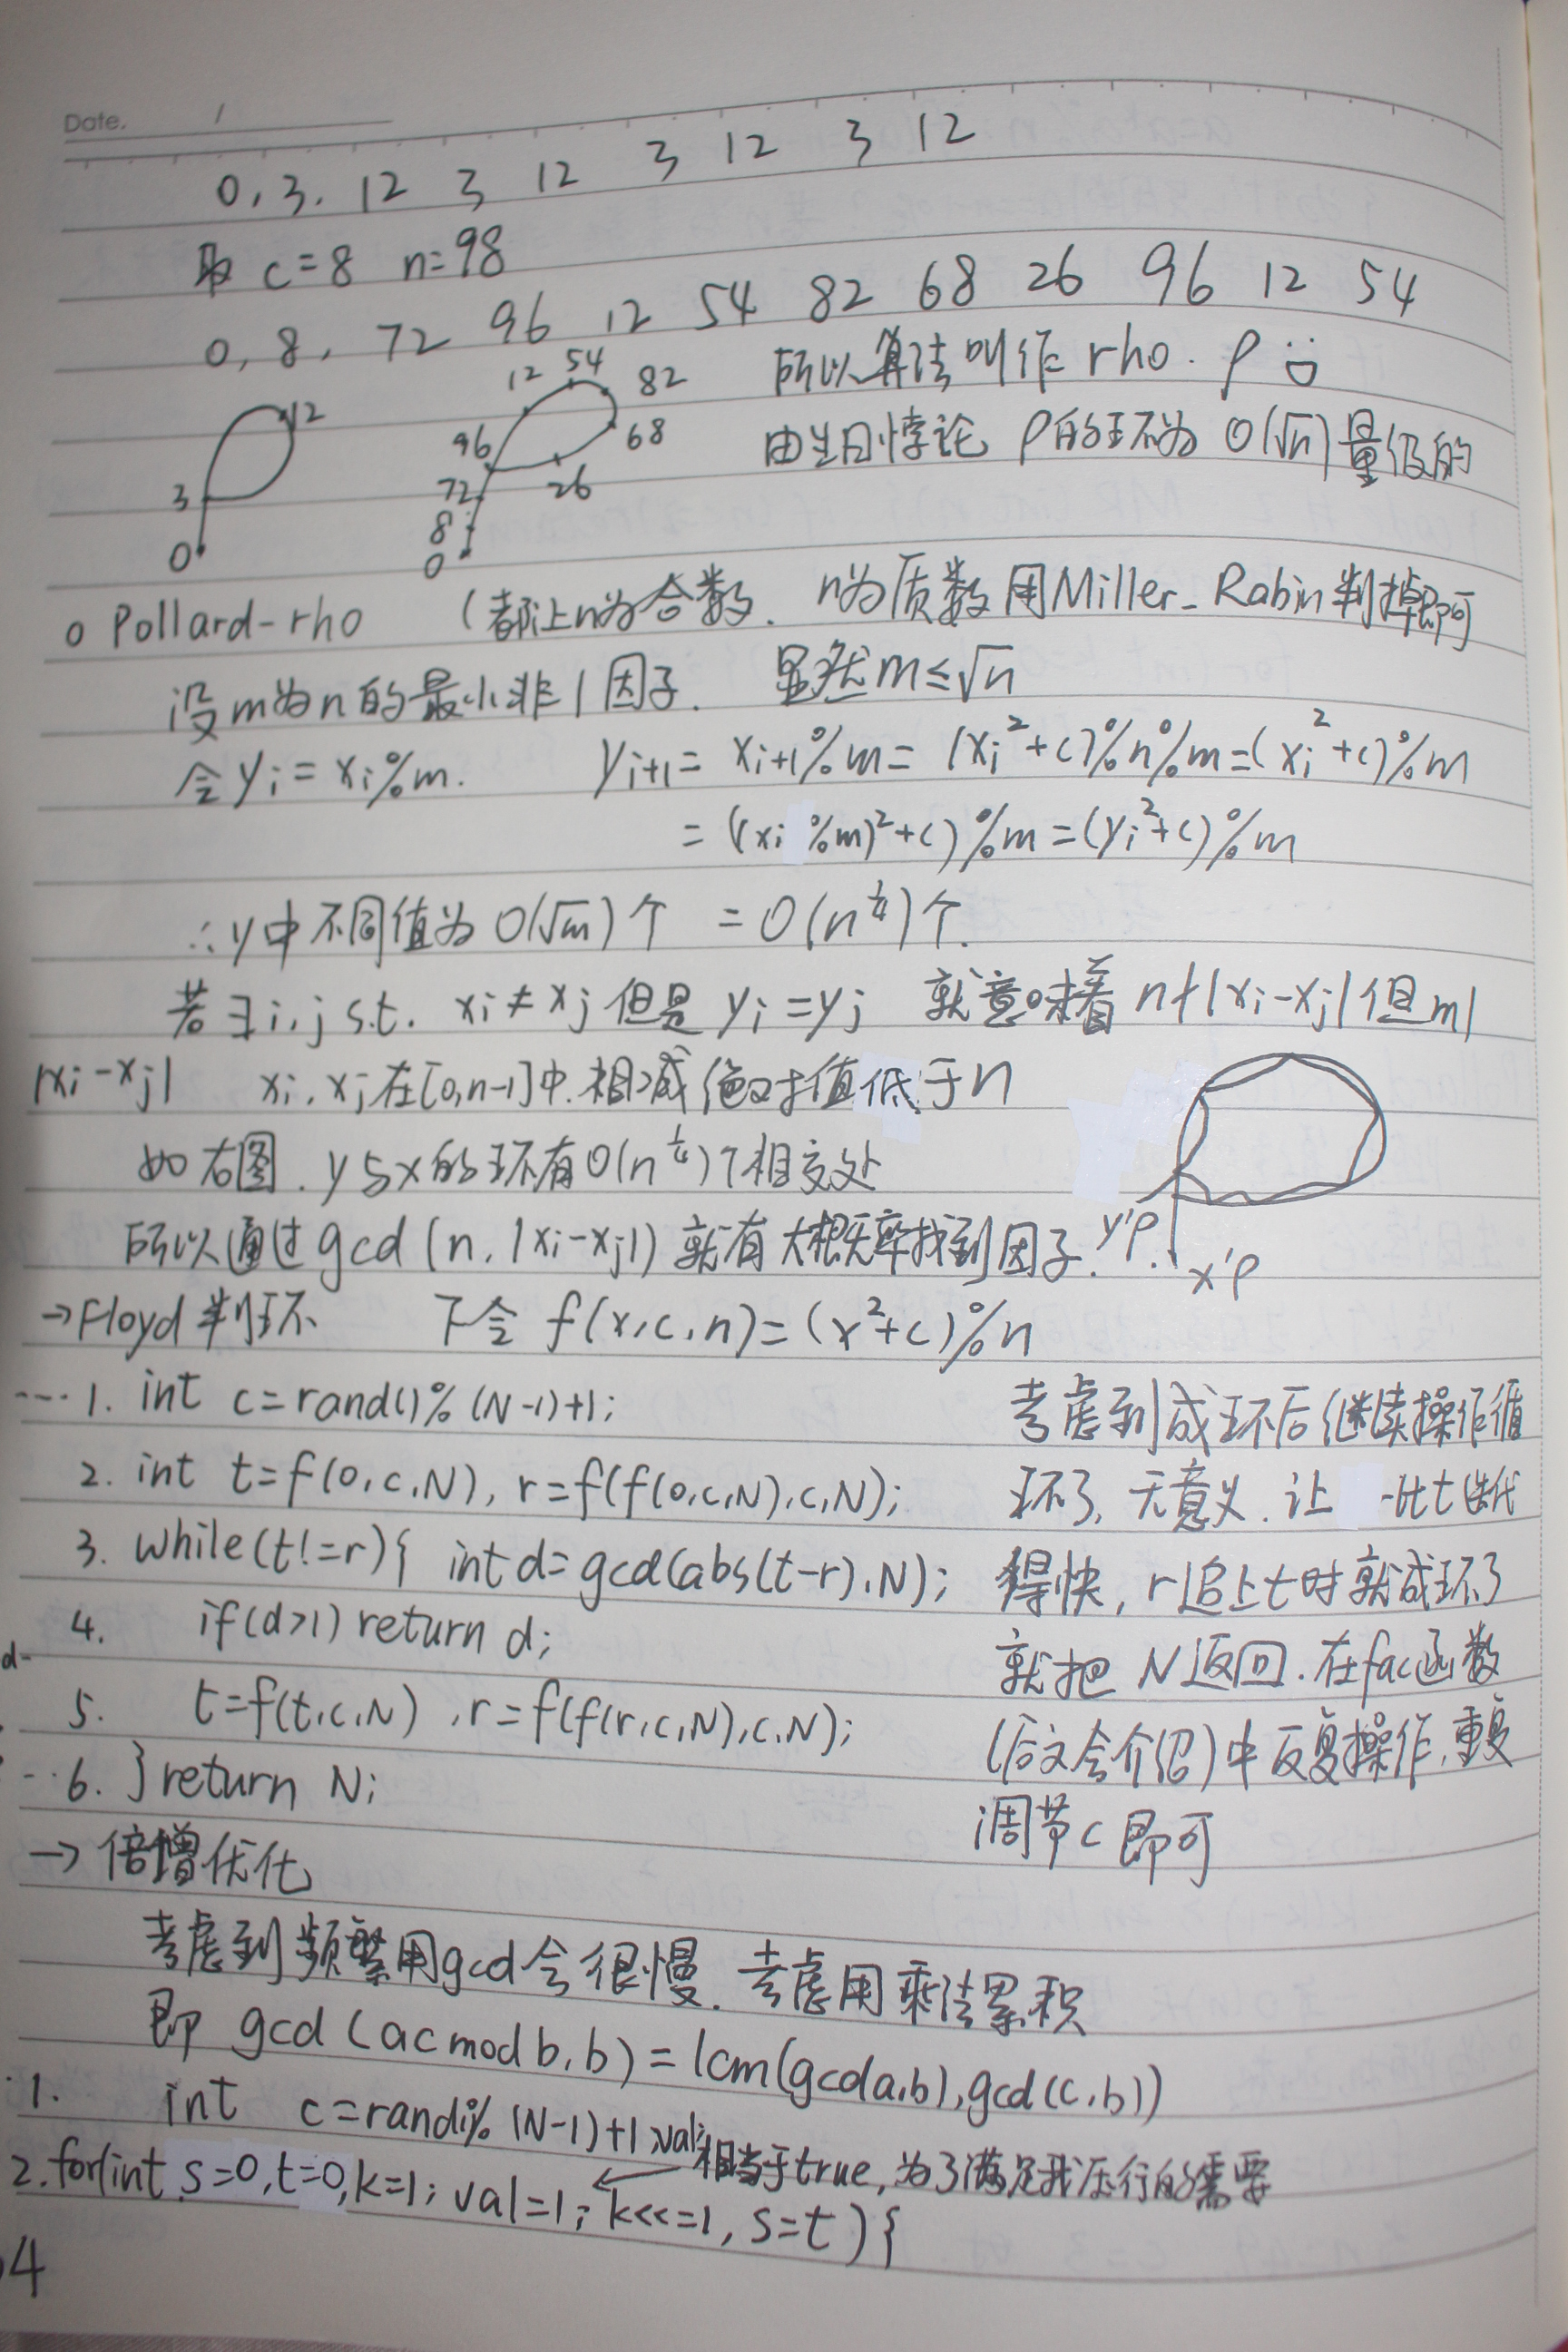 Date. /
0, 3, 12 3 12 3 12 3 12
取 c=8 n=98
0, 8, 72 96 12 54 82 68 26 96 12 54
所以算法叫作 rho. ρ
由生日悖论 ρ的环为 O(√n)量级的
12
3
0
12 54 82
96 68
72 26
8
0
o Pollard-rho (都让n为合数. n为质数用Miller-Rabin判掉即可
设m为n的最小非1因子. 显然 m≤√n
令 yᵢ = xᵢ%m. yᵢ₊₁ = xᵢ₊₁%m = (xᵢ²+c)%n%m=(xᵢ²+c)%m
= ((xᵢ %m)²+c)%m=(yᵢ²+c)%m
∴y中不同值为 O(√m)个 = O(n^¼)个.
若∃i,j s.t. xᵢ≠xⱼ 但是 yᵢ=yⱼ 就意味着 n∤|xᵢ-xⱼ|但m|
|xᵢ-xⱼ| xᵢ,xⱼ在[0,n-1]中.相减绝对值低于n
如右图. y与x的环有O(n^¼)个相交处
所以通过gcd(n,|xᵢ-xⱼ|)就有大概率找到因子.
y'ρ
x'ρ
→Floyd判环 下令 f(x,c,n)=(x²+c)%n
1. int c=rand()%(N-1)+1;
2. int t=f(0,c,N), r=f(f(0,c,N),c,N);
3. while(t!=r){ int d=gcd(abs(t-r),N);
4. if(d>1) return d;
5. t=f(t,c,N) ,r=f(f(r,c,N),c,N);
6. } return N;
考虑到成环后继续操作循
环了,无意义.让 一比t迭代
得快,r追上t时就成环了
就把N返回.在fac函数
(后文会介绍)中反复操作,重复
调节c即可
→倍增优化
考虑到频繁用gcd会很慢.考虑用乘法累积
即 gcd(ac mod b,b)=lcm(gcd(a,b),gcd(c,b))
1. int c=rand()%(N-1)+1,val;
相当于true,为了满足我压行的需要
2. for(int s=0,t=0,k=1; val=1; k<<=1, s=t){
4